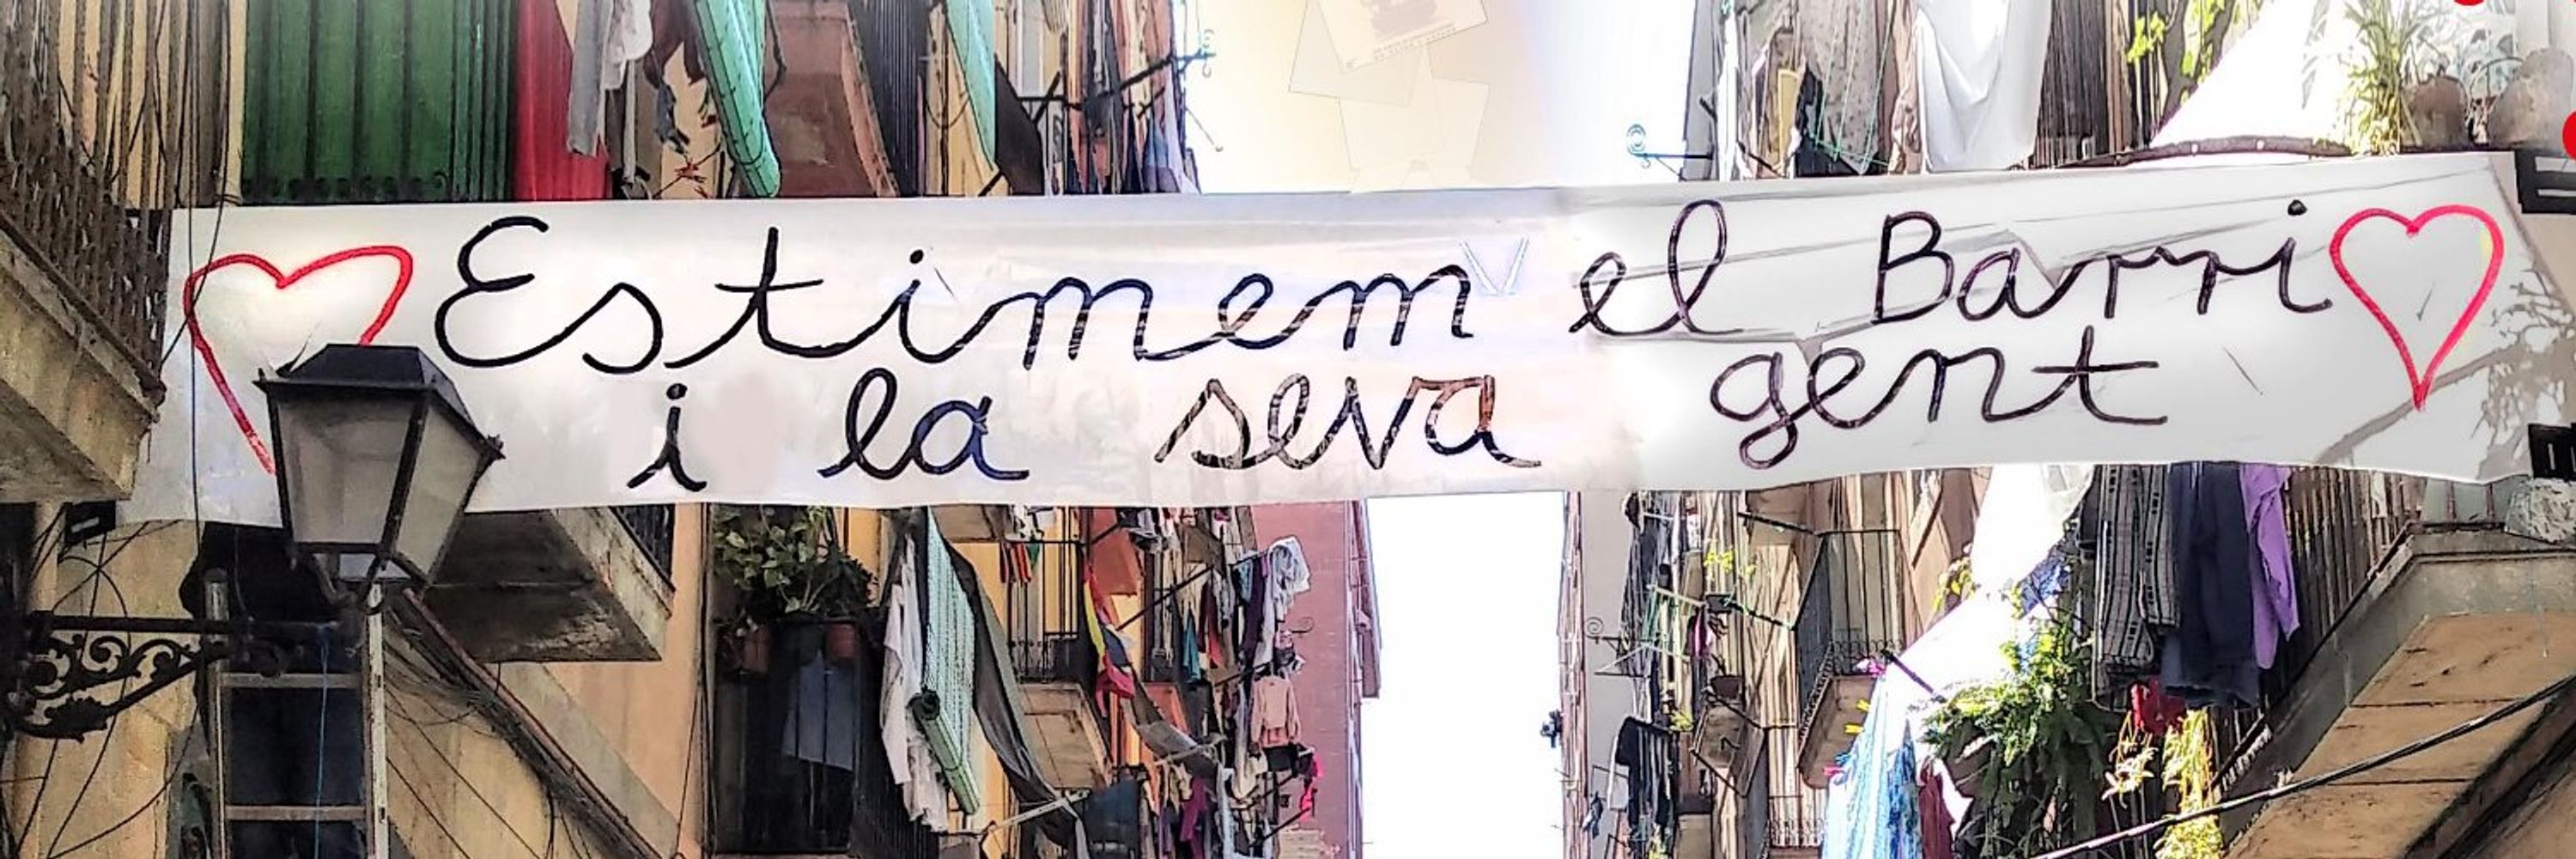 Estimem el Barri
i la seva gent